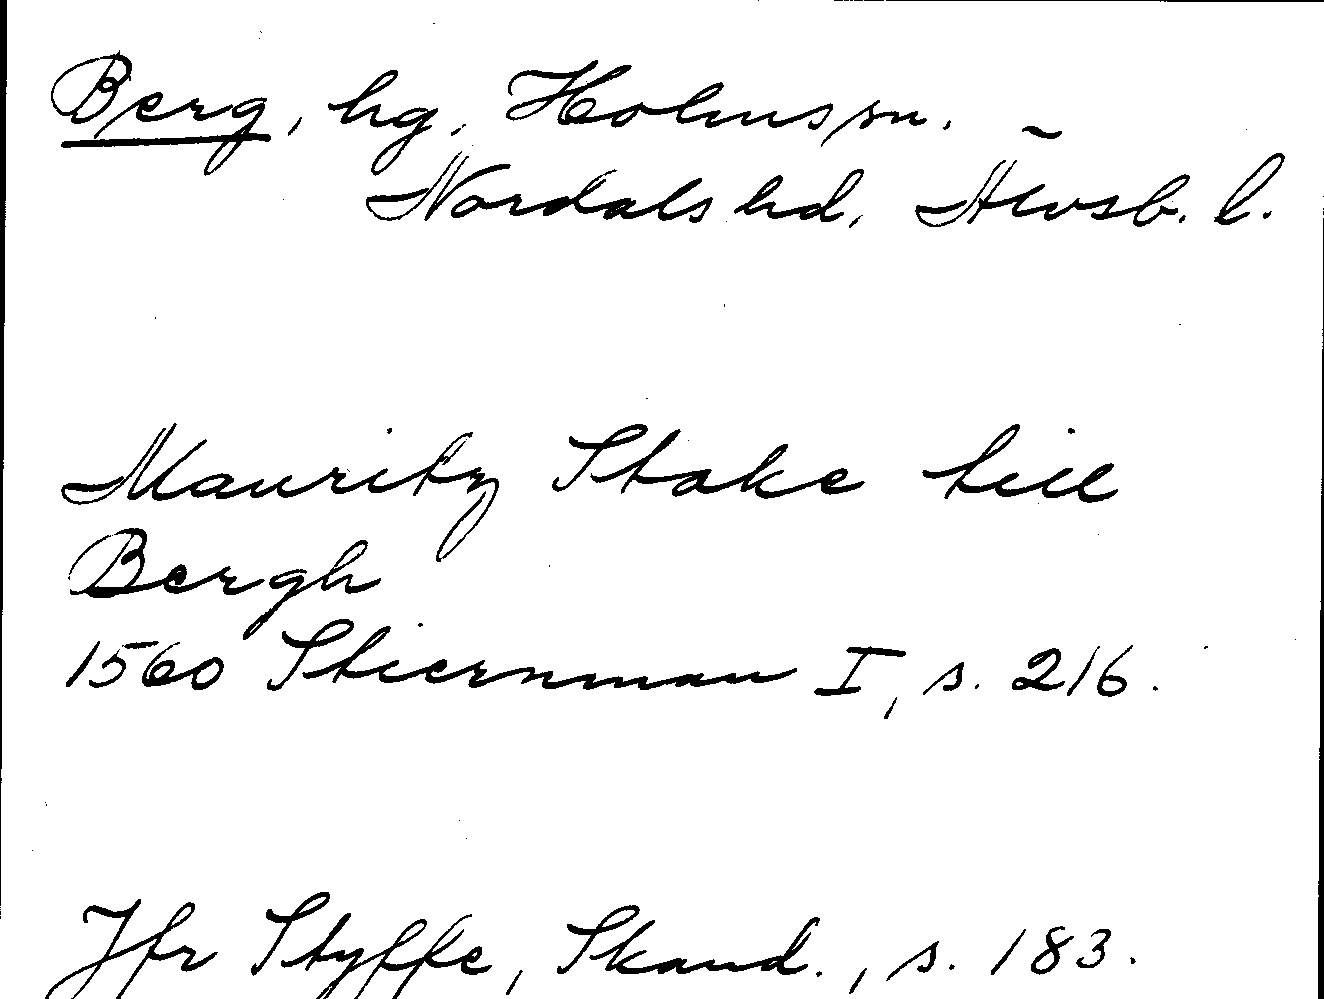 Berg, hg, Holms sn.
Nordals hd, Älvsb. l.
Mauritz Stake till
Bergh
1560 Stiernman I, s. 216.
Jfr Styffe, Skand., s. 183.